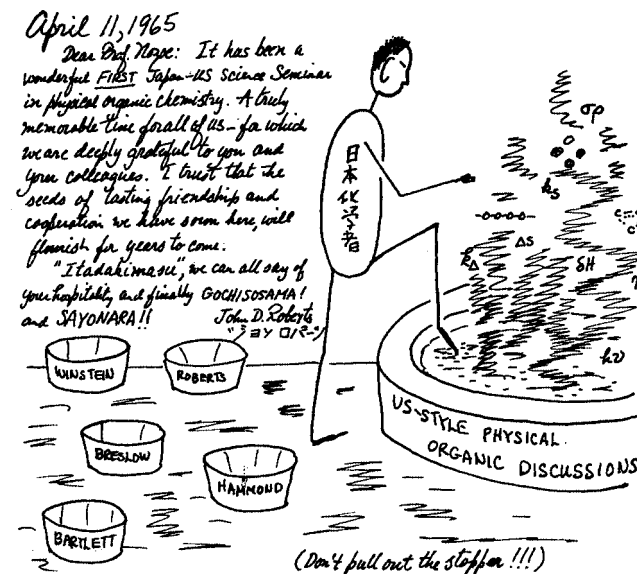 April 11, 1965
Dear Prof. Nozoe: It has been a
wonderful FIRST Japan-US Science Seminar
in physical organic chemistry. A truly
memorable time for all of us – for which
we are deeply grateful to you and
your colleagues. I trust that the
seeds of lasting friendship and
cooperation we have sown here, will
flourish for years to come.
"Itadakimasu", we can all say of
your hospitality and finally GOCHISOSAMA!
and SAYONARA!!
John D. Roberts
"ジョン ロバーツ"
日本化学者
σρ
ks
ΔS
kΔ
δH
hν
WINSTEIN
ROBERTS
BRESLOW
HAMMOND
BARTLETT
US-STYLE PHYSICAL
ORGANIC DISCUSSIONS
(Don't pull out the stopper!!!)